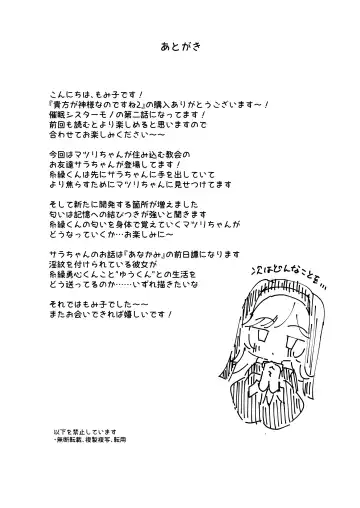 あとがき
こんにちは、もみ子です！
『貴方が神様なのですね2』の購入ありがとうございます～！
催眠シスターモノの第二話になってます！
前回も読むとより楽しめると思いますので
合わせてお楽しみください～～
今回はマツリちゃんが住み込む教会の
お友達サラちゃんが登場してます！
糸縁くんは先にサラちゃんに手を出していて
より焦らすためにマツリちゃんに見せつけてます
そして新たに開発する箇所が増えました
匂いは記憶への結びつきが強いと聞きます
糸縁くんの匂いを身体で覚えていくマツリちゃんが
どうなっていくか…お楽しみに～
サラちゃんのお話は『あなかみ』の前日譚になります
淫紋を付けられている彼女が
糸縁勇心くんこと"ゆうくん"との生活を
どう送ってるのか……いずれ描きたいな
それではもみ子でした～～
またお会いできれば嬉しいです！
次はどんなことを…
以下を禁止しています
・無断転載、複製複写、転用